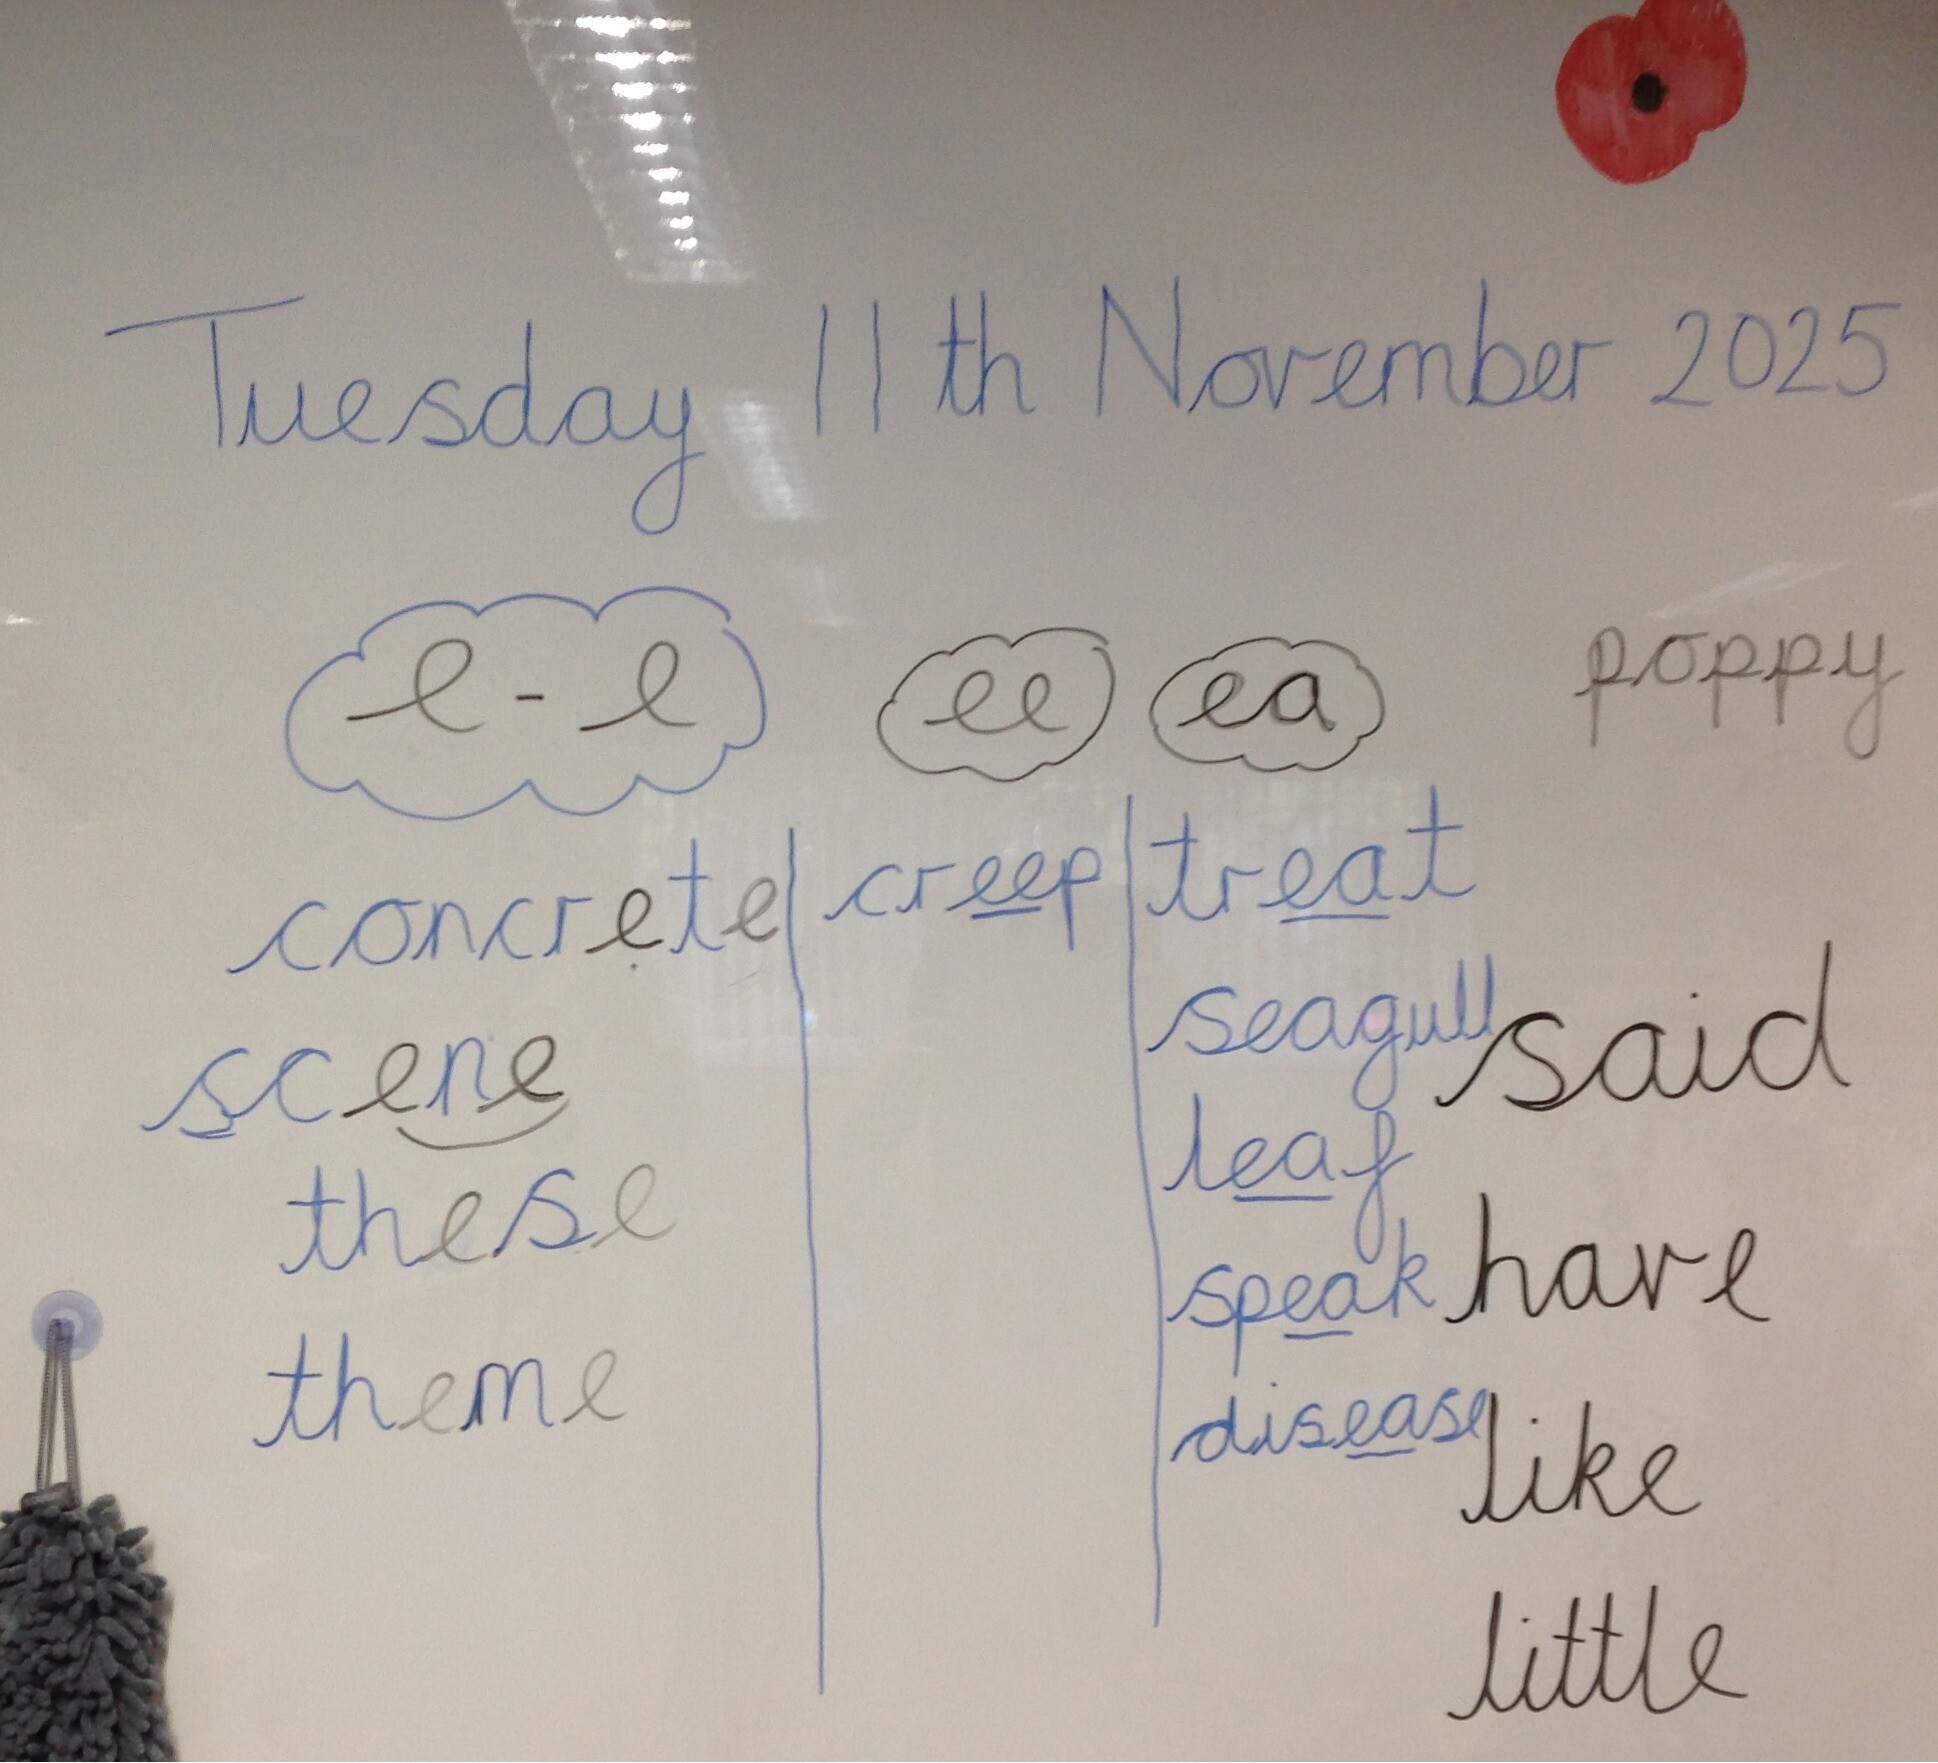 Tuesday 11th November 2025
e - e ee ea poppy
concrete creep treat
seagull said
scene
leaf
these
speak have
theme
disease like
little